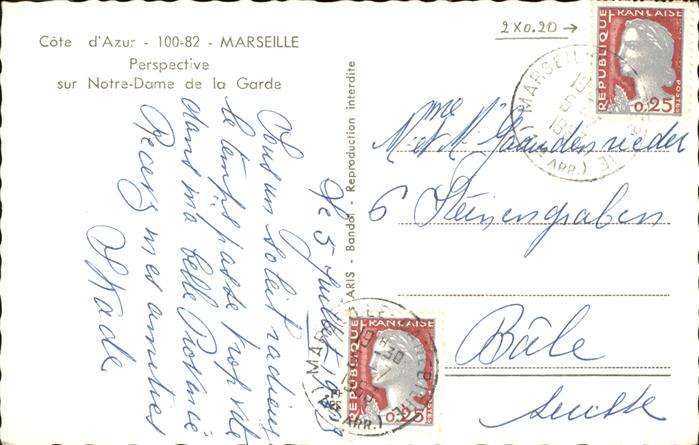 Côte d'Azur - 100-82 - MARSEILLE
Perspective
sur Notre-Dame de la Garde
ARIS - Bandol - Reproduction interdite
2x0.20 →
RÉPUBLIQUE FRANÇAISE
0,25
POSTES
MARSEILLE
ARR.)
Le 5 Juillet
Sous un soleil radieux
le temps passe trop vite
dans ma belle Provence
Recevez mes amitiés
Mme et M.
6 Steinengraben
Bâle
Suisse
RÉPUBLIQUE FRANÇAISE
0,25
POSTES
ARR.)